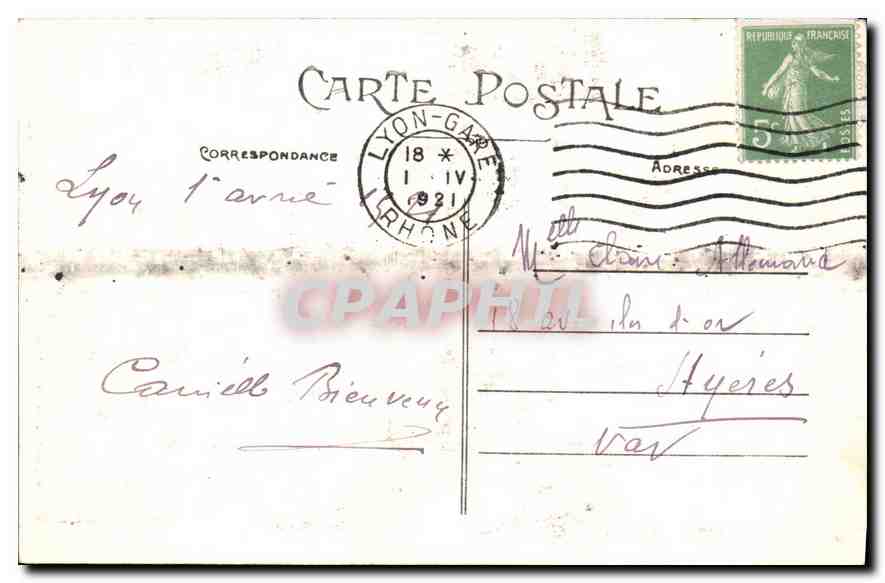 CARTE POSTALE
REPUBLIQUE FRANÇAISE
5c
POSTES
LYON-GARE
18 *
1 IV
921
RHÔNE
CORRESPONDANCE
ADRESSE
Lyon 1er avril
21
Melle Claire Allemand
18 av. iles d'or
Hyères
Var
Camille Bienvenu
CPAPHIL